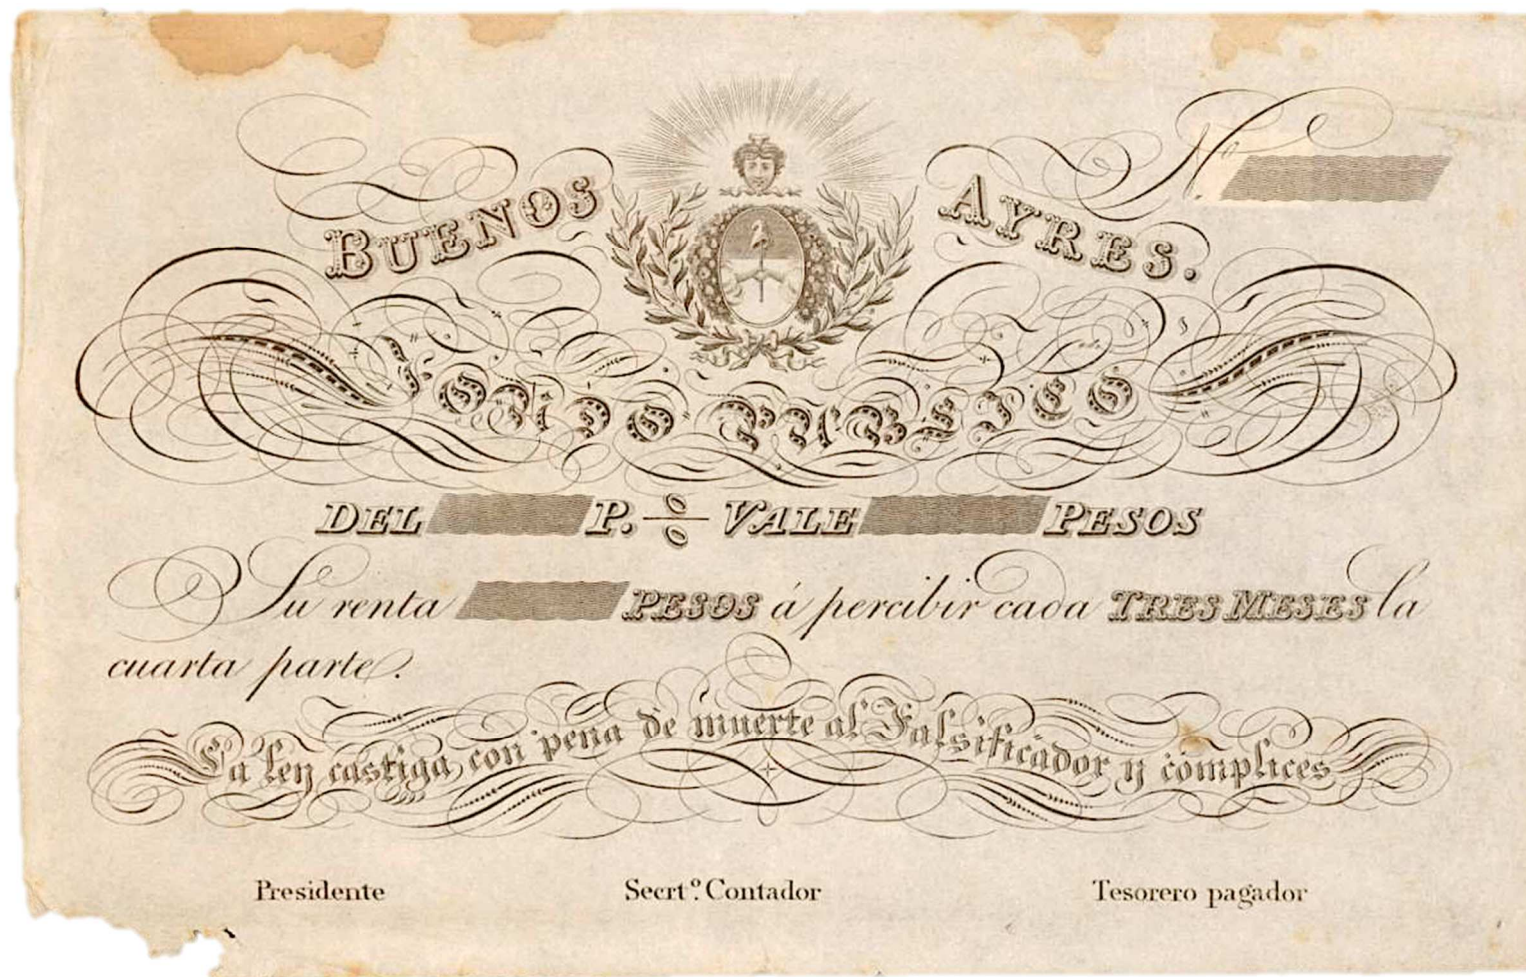 N.º
BUENOS AYRES.
FONDO PUBLICO
DEL P. % VALE PESOS
Su renta PESOS á percibir cada TRES MESES la
cuarta parte.
La Ley castiga con pena de muerte al Falsificador y complices
Presidente Secrt.º Contador Tesorero pagador